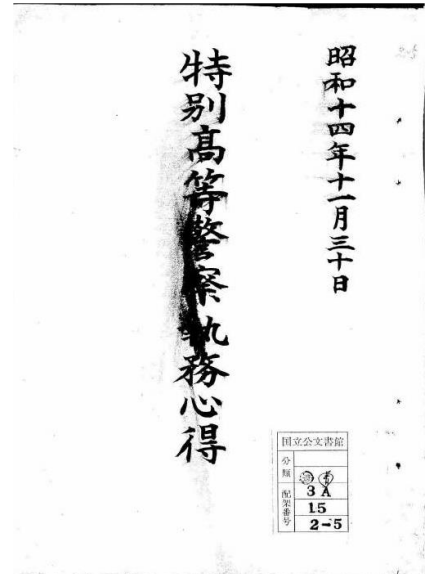 昭和十四年十一月三十日
特別高等警察執務心得
国立公文書館
分類
3A
配架番号
15
2-5